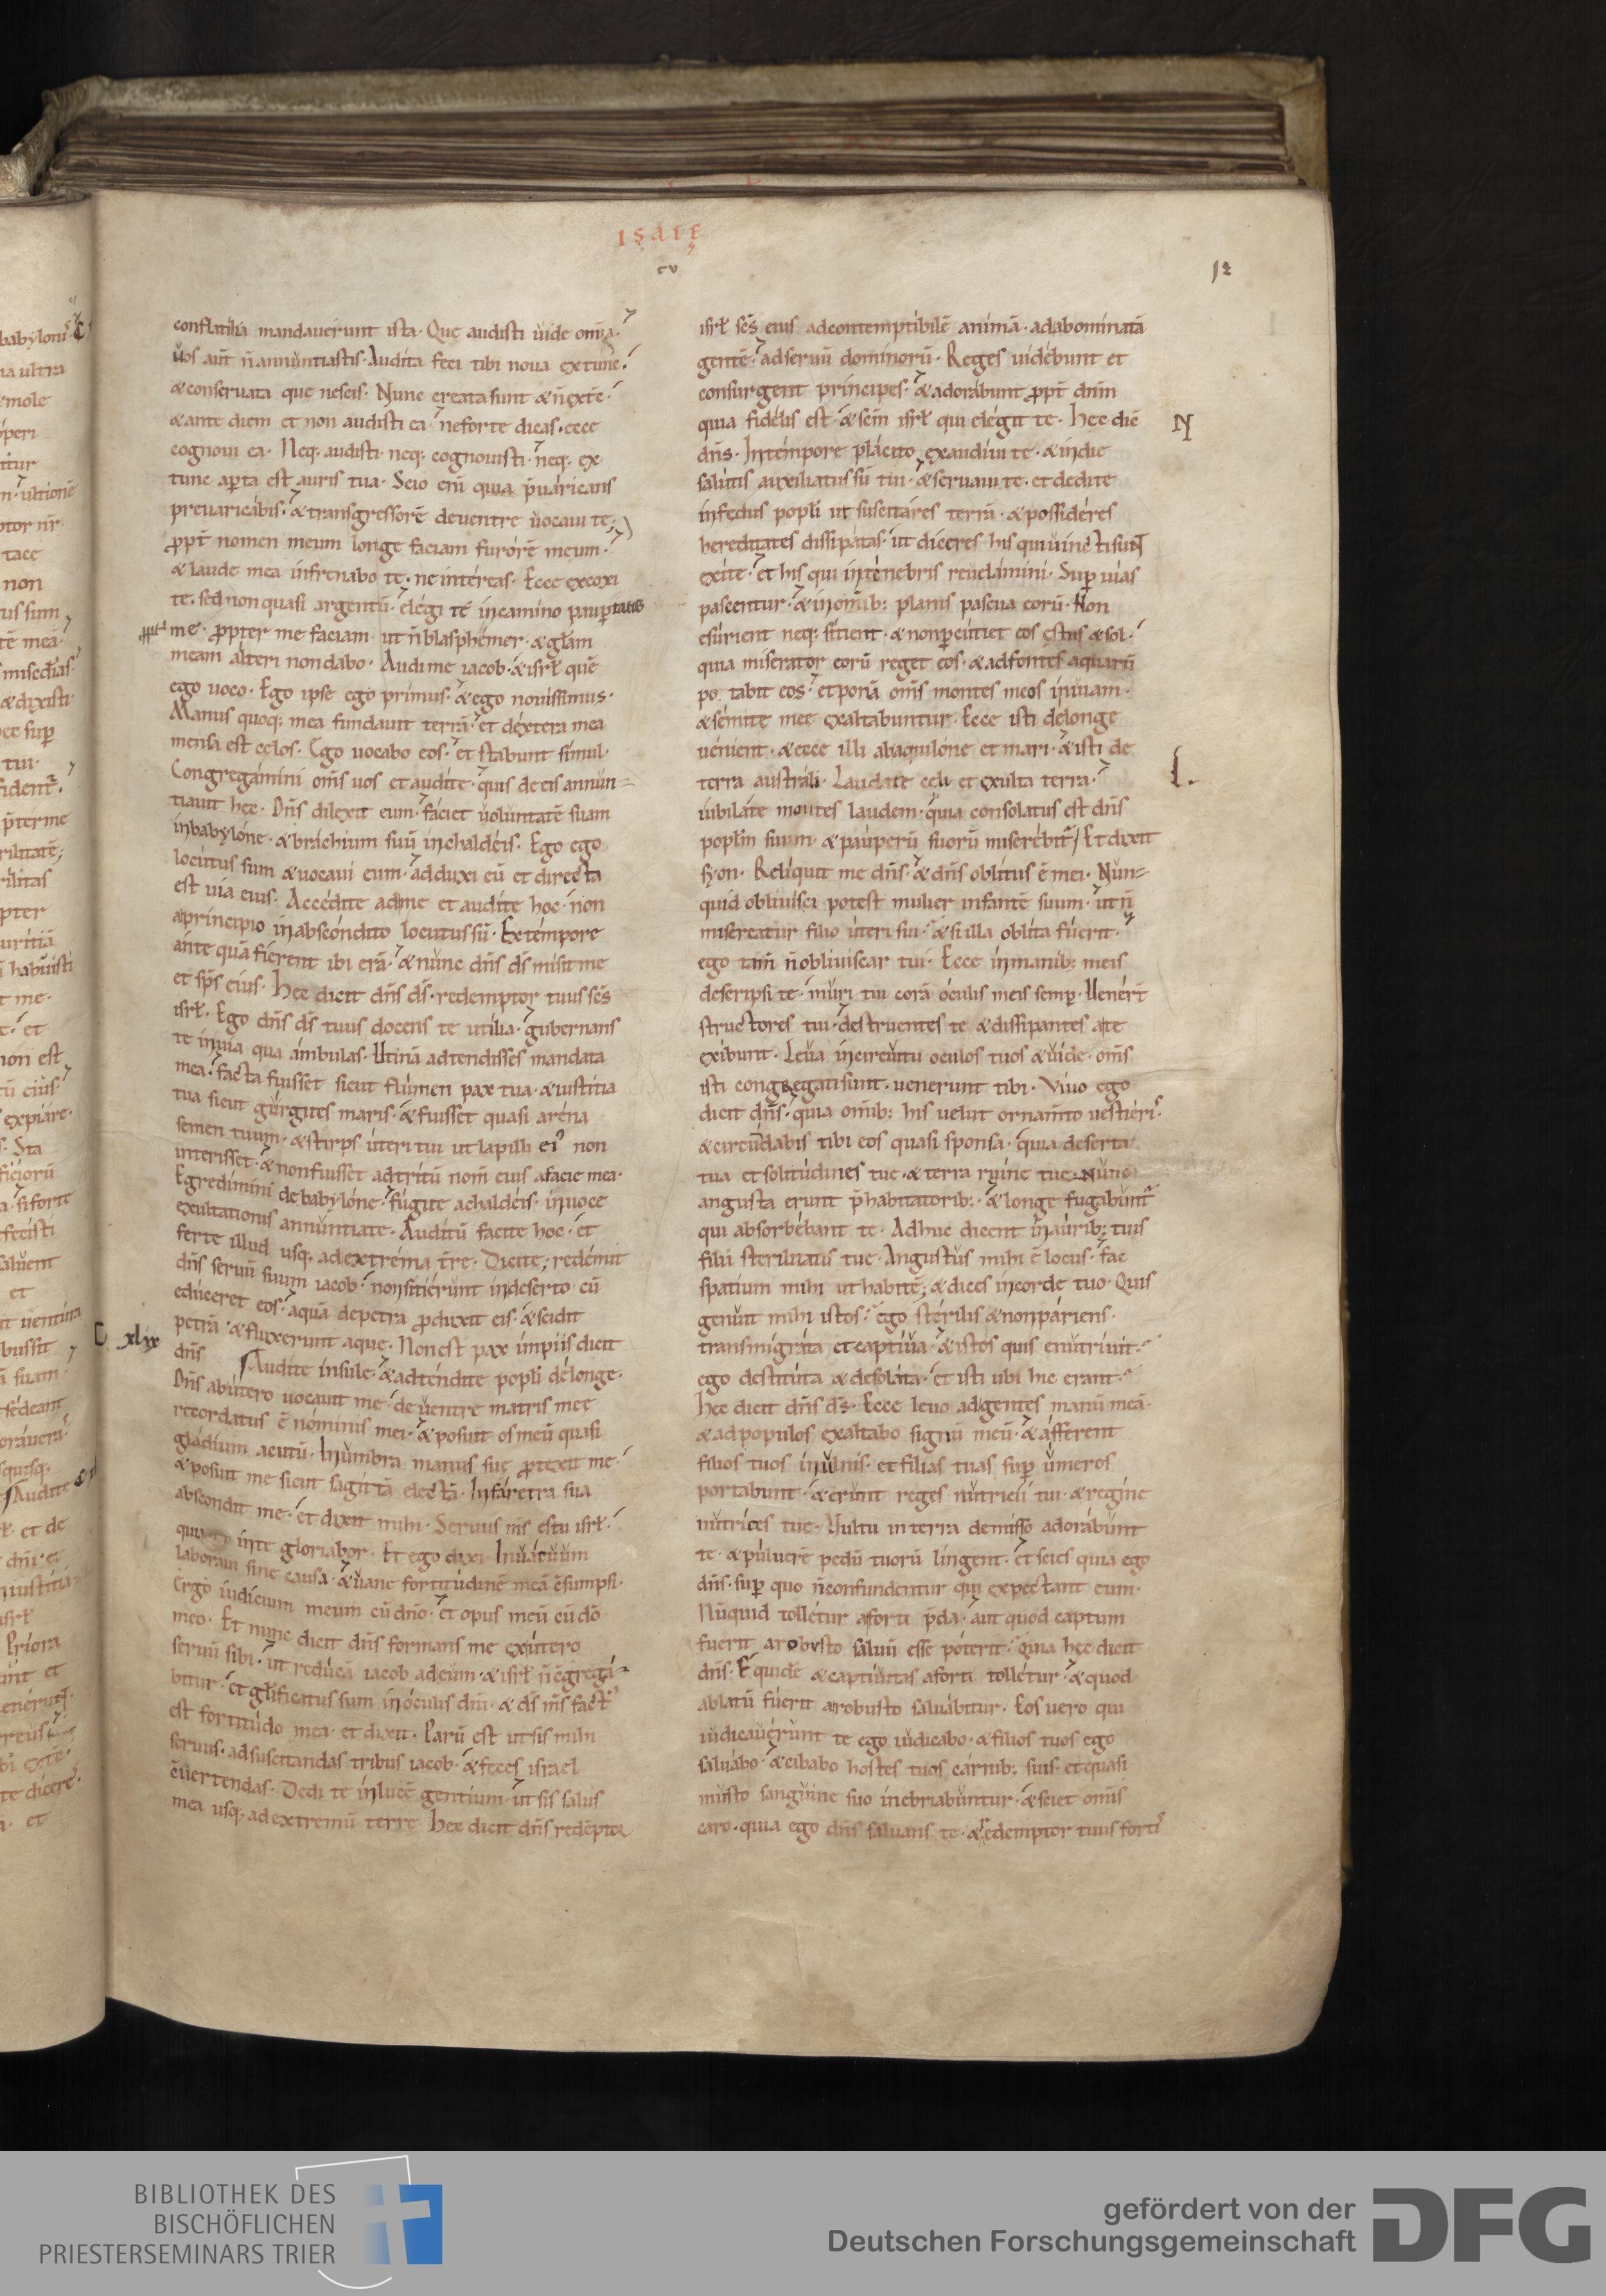 ISAIĘ
cv
12
conflatilia mandauerunt ista. Que audisti uide om̄ia.
uos aut̄ n̄ annuntiastis. Audita feci tibi noua extunc.
& conseruata que nescis. Nunc creata sunt & n̄ extc̄.
& ante diem et non audisti ea. ne forte dicas. ecce
cognoui ea. Neq; audisti. neq; cognouisti. neq; ex
tunc aꝑta est auris tua. Scio eni quia p̄uaricans
preuaricabis. & transgressorē deuentre uocaui te.
ꝓpt̄ nomen meum longe faciam furorē meum.
& laude mea infrenabo te. ne intereas. Ecce excoxi
te. sed non quasi argentū. elegi te incamino pauꝑtatis
me. ꝓpter me faciam ut n̄ blasphemer. & gl̄am
meam alteri non dabo. Audi me iacob. & isrł quē
ego uoco. Ego ipse ego primus. & ego nouissimus.
Manus quoq; mea fundauit terrā. et dextera mea
mensa est celos. Ego uocabo eos. et stabunt simul.
Congregamini om̄s uos et audite. quis de eis annun=
tiauit hęc. Dn̄s dilexit eum. faciet uoluntatē suam
inbabylone. & brachium suū inchaldeis. Ego ego
locutus sum & uocaui eum. adduxi eū et directa
est uia eius. Accedite ad me et audite hoc. non
aprincipio inabscondito locutus sū. Extempore
ante quā fierent ibi erā. & nunc dn̄s ds̄ misit me
et sp̄s eius. Hęc dicit dn̄s ds̄. redemptor tuus sc̄s
isrł. Ego dn̄s ds̄ tuus docens te utilia. gubernans
te inuia qua ambulas. Utinā adtendisses mandata
mea. facta fuisset sicut flumen pax tua. & iustitia
tua sicut gurgites maris. & fuisset quasi arena
semen tuum. & stirps uteri tui ut lapilli ei᾽ non
interisset. & nonfuisset adtritū nom̄ eius afacie mea.
Egredimini de babylone. fugite achaldeis. inuoce
exultationis annuntiate. Auditū facite hoc. et
ferte illud usq; adextrema t̄re. Dicite; redemit
dn̄s seruū suum iacob. nonsitierunt indeserto. cū
educeret eos. aquā depetra ꝓduxit eis. & scidit
petrā. & fluxerunt aque. Non est pax impiis dicit
dn̄s
xlix
Audite insule. & adtendite popłi delonge.
Dn̄s abutero uocauit me. deuentre matris mee
recordatus ē nominis mei. & posuit os meū quasi
gladium acutū. Inumbra manus suę ꝓtexit me.
& posuit me sicut sagittā electā. Infaretra sua
abscondit me. et dixit mihi. Seruus m̄s es tu isrł.
quia inte gloriabor. Et ego dixi. Inuacuum
laboraui sine causa. & uane fortitudinē meā c̄sumpsi.
Ergo iudicium meum cū dn̄o. et opus meū cū dō
meo. Et nunc dicit dn̄s formans me exutero
seruū sibi. ut reducā iacob ad eum. & isrł n̄ c̄grega=
bitur. et gl̄ificatus sum inoculis dn̄i. & ds̄ m̄s fact᾽
est fortitudo mea. et dixit. Parū est ut sis mihi
seruus. adsuscitandas tribus iacob. & feces israel
c̄uertendas. Dedi te inlucē gentium. ut sis salus
mea usq; adextremū terre. Hęc dicit dn̄s redēptor
isrł sc̄s eius adcontemptibilē animā. adabominatā
gentē. adseruū dominorū. Reges uidebunt et
consurgent principes. & adorabunt ꝓpt̄ dn̄m
quia fidelis est. & sc̄m isrł qui elegit te. Hęc dic̄
N
dn̄s. Intempore placito exaudiui te. & indie
salutis auxiliatus sū tui. & seruaui te. et dedi te
infedus popłi ut suscitares terrā. & possideres
hereditates dissipatas. ut diceres his qui uincti sun̄t
exite. et his qui intenebris reuelamini. Suꝑ uias
pascentur. & inom̄ib; planis pascua eorū. Non
esurient neq; sitient. & nonꝑcutiet eos ęstus & sol.
quia miserator eorū reget eos. & adfontes aquarū
po tabit eos. et ponā om̄s montes meos inuiam.
& semite mee exaltabuntur. Ecce isti delonge
uenient. & ecce illi abaquilone et mari. & isti de
terra australi. Laudate celi et exulta terra.
L.
iubilate montes laudem. quia consolatus est dn̄s
popłm suum. & pauperū suorū miserebit᷑. Et dixit
syon. Reliquit me dn̄s. & dn̄s oblitus ē mei. Nun=
quid obliuisci potest mulier infantē suum. ut n̄
misereatur filio uteri sui. & si illa oblita fuerit.
ego tam̄ n̄ obliuiscar tui. Ecce inmanib; meis
descripsi te. muri tui corā oculis meis semꝑ. Uener̄t
structores tui. destruentes te & dissipantes a te
exibunt. Leua incircuitu oculos tuos & uide. om̄s
isti congregati sunt. uenerunt tibi. Viuo ego
dicit dn̄s. quia om̄ib; his uelut ornam̄to uestieri᾽.
& circūdabis tibi eos quasi sponsa. quia deserta
tua et solitudines tue. & terra ruine tue. nunc
angusta erunt p̄ habitatorib;. & longe fugabunt᷑
qui absorbebant te. Adhuc dicent inaurib; tuis
filii sterilitatis tue. Angustus mihi ē locus. fac
spatium mihi ut habitē; & dices incorde tuo. Quis
genuit mihi istos. ego sterilis & nonpariens.
transmigrata et captiua. & istos quis enutriuit.
ego destituta & desolata. et isti ubi hic erant.
Hęc dicit dn̄s ds̄. Ecce leuo adgentes manū meā.
& adpopulos exaltabo signū meū. & afferent
filios tuos inulnis. et filias tuas suꝑ umeros
portabunt. & erunt reges nutricii tui. & regine
nutrices tue. Vultu interra demisso adorabunt
te. & puluerē pedū tuorū lingent. et scies quia ego
dn̄s. suꝑ quo n̄confundentur qui expectant eum.
Nūquid tolletur aforti p̄da. aut quod captum
fuerit arobusto saluū esse poterit. Quia hęc dicit
dn̄s. Equidē & captiuitas aforti tolletur. & quod
ablatū fuerit arobusto saluabitur. Eos uero qui
iudicauerunt te ego iudicabo. & filios tuos ego
saluabo. & cibabo hostes tuos carnib; suis. et quasi
musto sanguine suo inebriabuntur. & sciet omis
caro. quia ego dn̄s saluans te. & redemptor tuus forti᾽
BIBLIOTHEK DES
BISCHÖFLICHEN
PRIESTERSEMINARS TRIER
gefördert von der
Deutschen Forschungsgemeinschaft
DFG